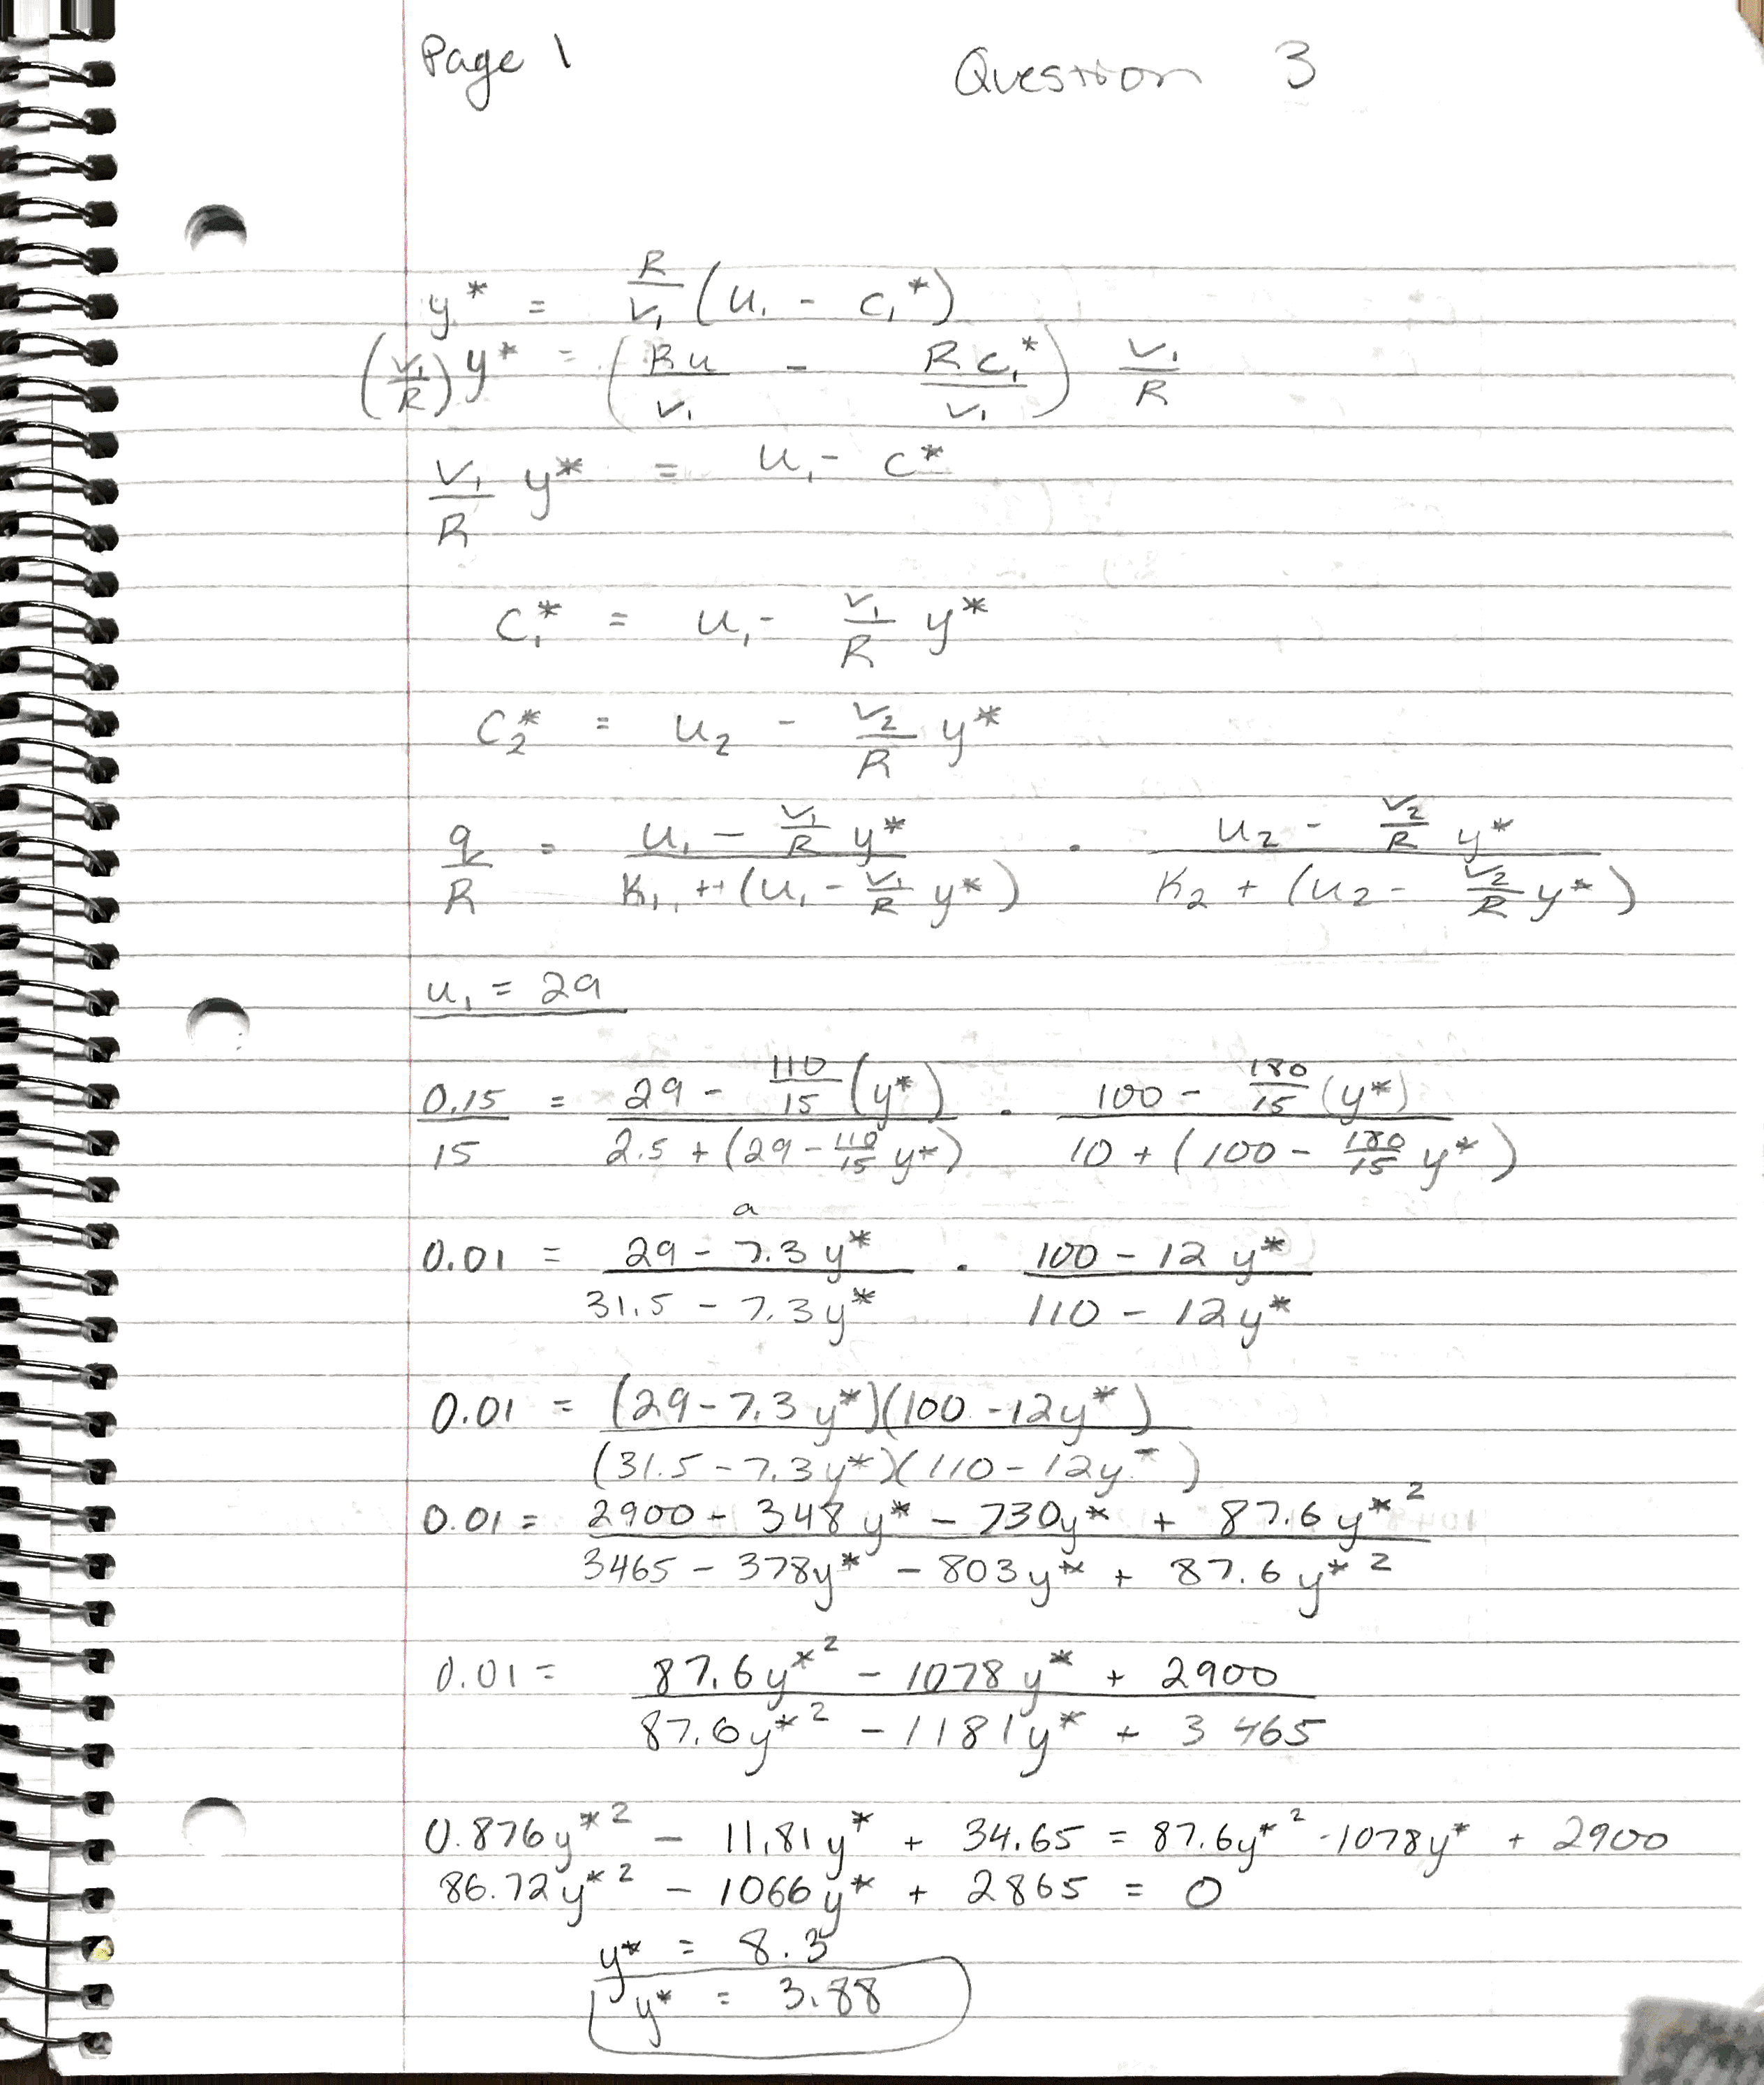 Page 1 Question 3
y* = R/V₁ (u₁ - c₁*)
(V₁/R) y* = (Ru/V₁ - Rc₁*/V₁) V₁/R
V₁/R y* = u₁ - c*
c₁* = u₁ - V₁/R y*
c₂* = u₂ - V₂/R y*
q/R = (u₁ - V₁/R y*)/(K₁ + (u₁ - V₁/R y*)) · (u₂ - V₂/R y*)/(K₂ + (u₂ - V₂/R y*))
u₁ = 29
0.15/15 = (29 - 110/15 (y*))/(2.5 + (29 - 110/15 y*)) · (100 - 180/15 (y*))/(10 + (100 - 180/15 y*))
a
0.01 = (29 - 7.3y*)/(31.5 - 7.3y*) · (100 - 12y*)/(110 - 12y*)
0.01 = (29 - 7.3y*)(100 - 12y*)/(31.5 - 7.3y*)(110 - 12y*)
0.01 = (2900 - 348y* - 730y* + 87.6y*²)/(3465 - 378y* - 803y* + 87.6y*²)
0.01 = (87.6y*² - 1078y* + 2900)/(87.6y*² - 1181y* + 3465)
0.876y*² - 11.81y* + 34.65 = 87.6y*² - 1078y* + 2900
86.72y*² - 1066y* + 2865 = 0
y* = 8.3
y* = 3.88